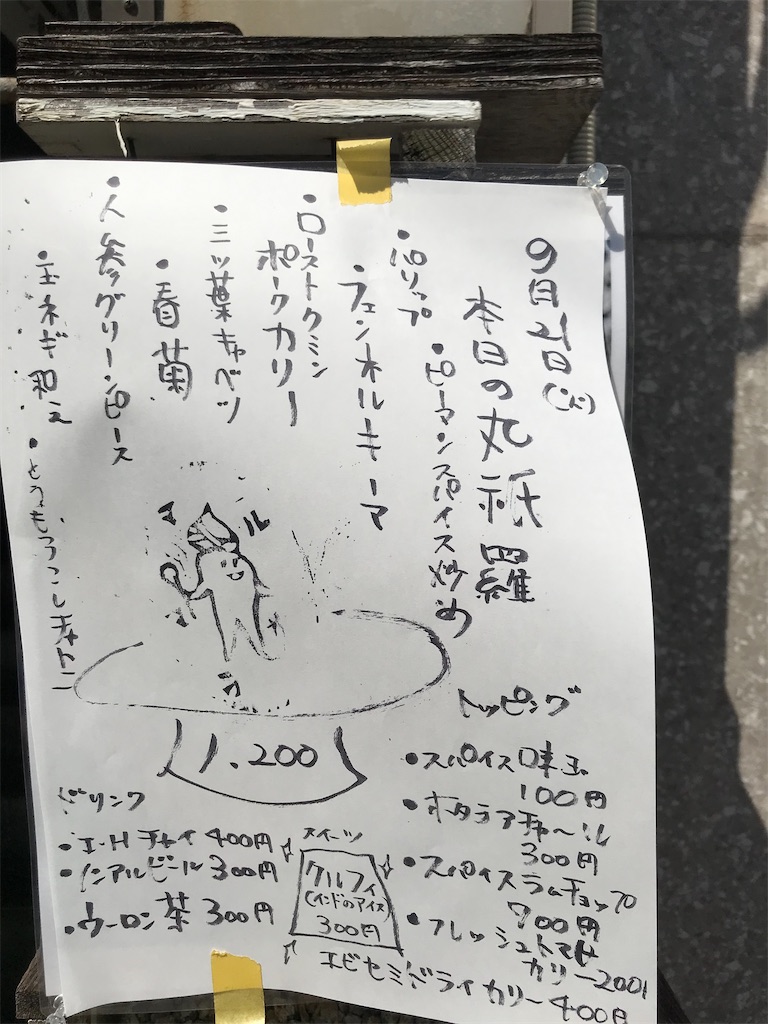 9月21日(火)
本日の丸祇羅
・ピーマンスパイス炒め
・パリップ
・フェンネルキーマ
・ローストクミン
ポークカリー
・三ツ葉キャベツ
・春菊
・人参グリーンピース
・玉ネギ和え
・とうもろこしチャトニ
マ
ル
1.200
トッピング
・スパイス味玉
100円
300円
・スパイスラムチョップ
700円
・フレッシュトマト
カリー200円
エビセミドライカリー400円
ドリンク
チャイ 400円
・ノンアルビール 300円
・ウーロン茶 300円
スイーツ
クルフィ
(インドのアイス)
300円